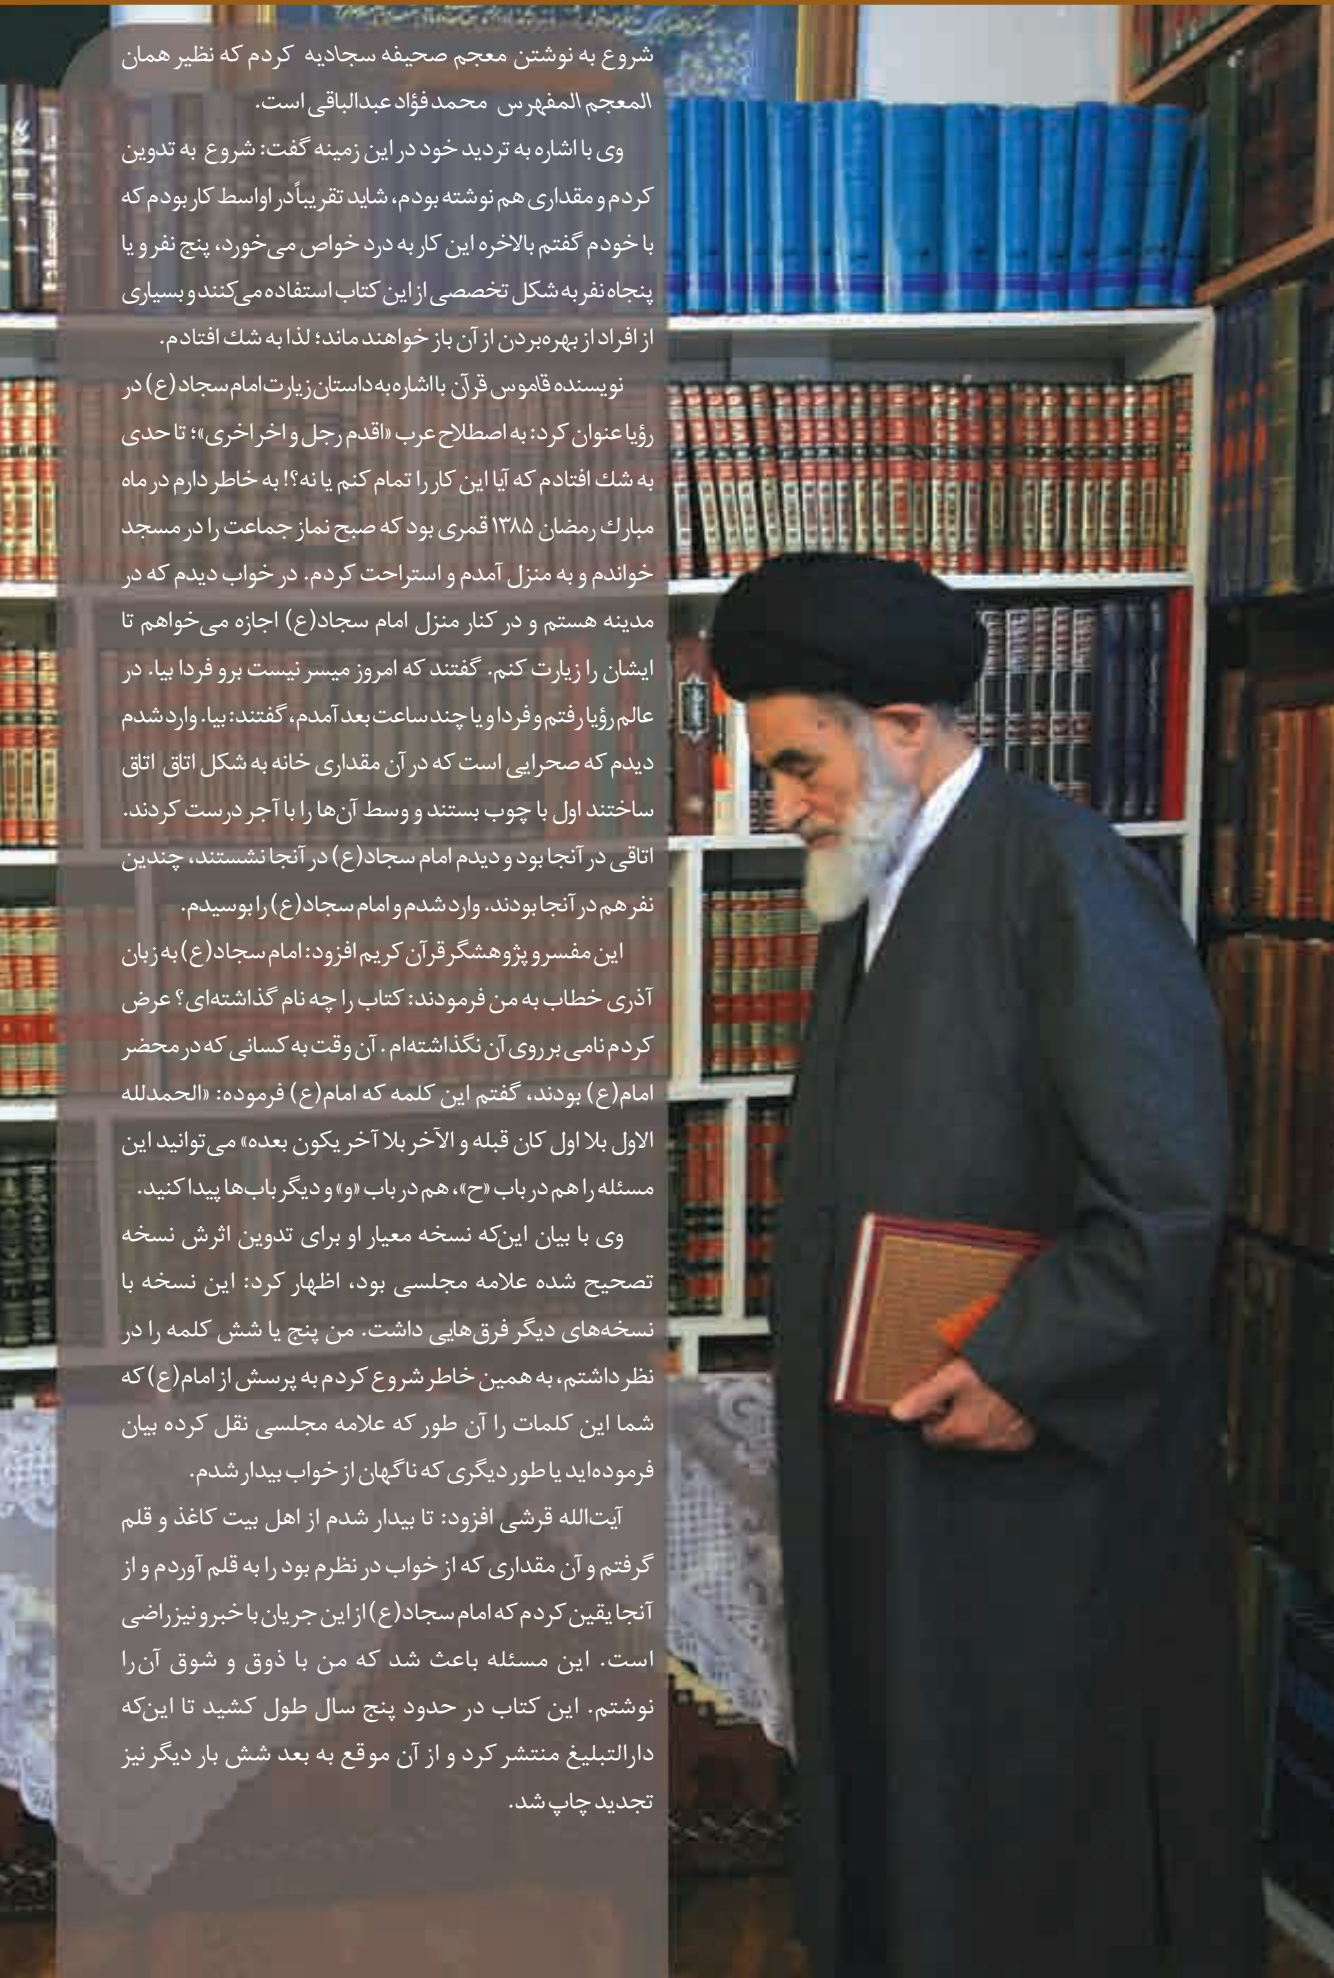 شروع به نوشتن معجم صحیفه سجادیه کردم که نظیر همان
المعجم المفهرس محمد فؤاد عبدالباقی است.
وی با اشاره به تردید خود در این زمینه گفت: شروع به تدوین
کردم و مقداری هم نوشته بودم، شاید تقریباً در اواسط کار بودم که
با خودم گفتم بالاخره این کار به درد خواص می‌خورد، پنج نفر و یا
پنجاه نفر به شکل تخصصی از این کتاب استفاده می‌کنند و بسیاری
از افراد از بهره‌بردن از آن باز خواهند ماند؛ لذا به شك افتادم.
نویسنده قاموس قرآن با اشاره به داستان زیارت امام سجاد(ع) در
رؤیا عنوان کرد: به اصطلاح عرب «اقدم رجل و اخر اخری»؛ تا حدی
به شك افتادم که آیا این کار را تمام کنم یا نه؟! به خاطر دارم در ماه
مبارك رمضان ۱۳۸۵ قمری بود که صبح نماز جماعت را در مسجد
خواندم و به منزل آمدم و استراحت کردم. در خواب دیدم که در
مدینه هستم و در کنار منزل امام سجاد(ع) اجازه می‌خواهم تا
ایشان را زیارت کنم. گفتند که امروز میسر نیست برو فردا بیا. در
عالم رؤیا رفتم و فردا و یا چند ساعت بعد آمدم، گفتند: بیا. وارد شدم
دیدم که صحرایی است که در آن مقداری خانه به شکل اتاق اتاق
ساختند اول با چوب بستند و وسط آن‌ها را با آجر درست کردند.
اتاقی در آنجا بود و دیدم امام سجاد(ع) در آنجا نشستند، چندین
نفر هم در آنجا بودند. وارد شدم و امام سجاد(ع) را بوسیدم.
این مفسر و پژوهشگر قرآن کریم افزود: امام سجاد(ع) به زبان
آذری خطاب به من فرمودند: کتاب را چه نام گذاشته‌ای؟ عرض
کردم نامی بر روی آن نگذاشته‌ام. آن وقت به کسانی که در محضر
امام(ع) بودند، گفتم این کلمه که امام(ع) فرموده: «الحمدلله
الاول بلا اول کان قبله و الآخر بلا آخر یکون بعده» می‌توانید این
مسئله را هم در باب «ح»، هم در باب «و» و دیگر باب‌ها پیدا کنید.
وی با بیان این‌که نسخه معیار او برای تدوین اثرش نسخه
تصحیح شده علامه مجلسی بود، اظهار کرد: این نسخه با
نسخه‌های دیگر فرق‌هایی داشت. من پنج یا شش کلمه را در
نظر داشتم، به همین خاطر شروع کردم به پرسش از امام(ع) که
شما این کلمات را آن طور که علامه مجلسی نقل کرده بیان
فرموده‌اید یا طور دیگری که ناگهان از خواب بیدار شدم.
آیت‌الله قرشی افزود: تا بیدار شدم از اهل بیت کاغذ و قلم
گرفتم و آن مقداری که از خواب در نظرم بود را به قلم آوردم و از
آنجا یقین کردم که امام سجاد(ع) از این جریان با خبر و نیز راضی
است. این مسئله باعث شد که من با ذوق و شوق آن‌را
نوشتم. این کتاب در حدود پنج سال طول کشید تا این‌که
دارالتبلیغ منتشر کرد و از آن موقع به بعد شش بار دیگر نیز
تجدید چاپ شد.